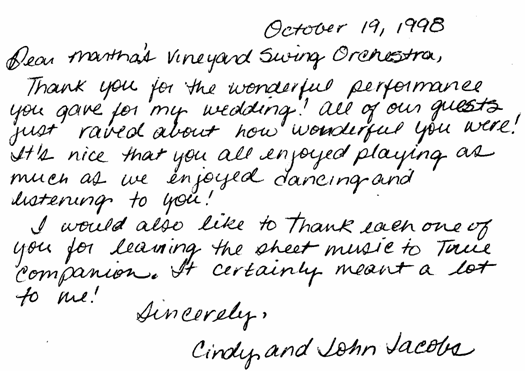 October 19, 1998
Dear Martha's Vineyard Swing Orchestra,
Thank you for the wonderful performance
you gave for my wedding! All of our guests
just raved about how wonderful you were!
It's nice that you all enjoyed playing as
much as we enjoyed dancing and
listening to you!
I would also like to Thank each one of
you for learning the sheet music to True
Companion. It certainly meant a lot
to me!
Sincerely,
Cindy and John Jacobs